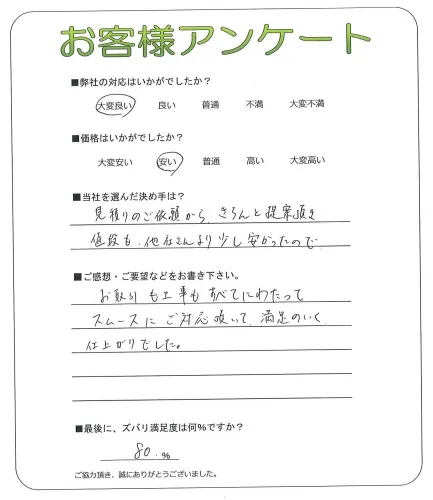 お客様アンケート
■弊社の対応はいかがでしたか？
大変良い 良い 普通 不満 大変不満
■価格はいかがでしたか？
大変安い 安い 普通 高い 大変高い
■当社を選んだ決め手は？
見積りのご依頼から、きちんと提案頂き
値段も、他社さんより少し安かったので
■ご感想・ご要望などをお書き下さい。
お取引も工事もすべてにわたって
スムースにご対応頂いて、満足のいく
仕上がりでした。
■最後に、ズバリ満足度は何%ですか？
80.%
ご協力頂き、誠にありがとうございました。